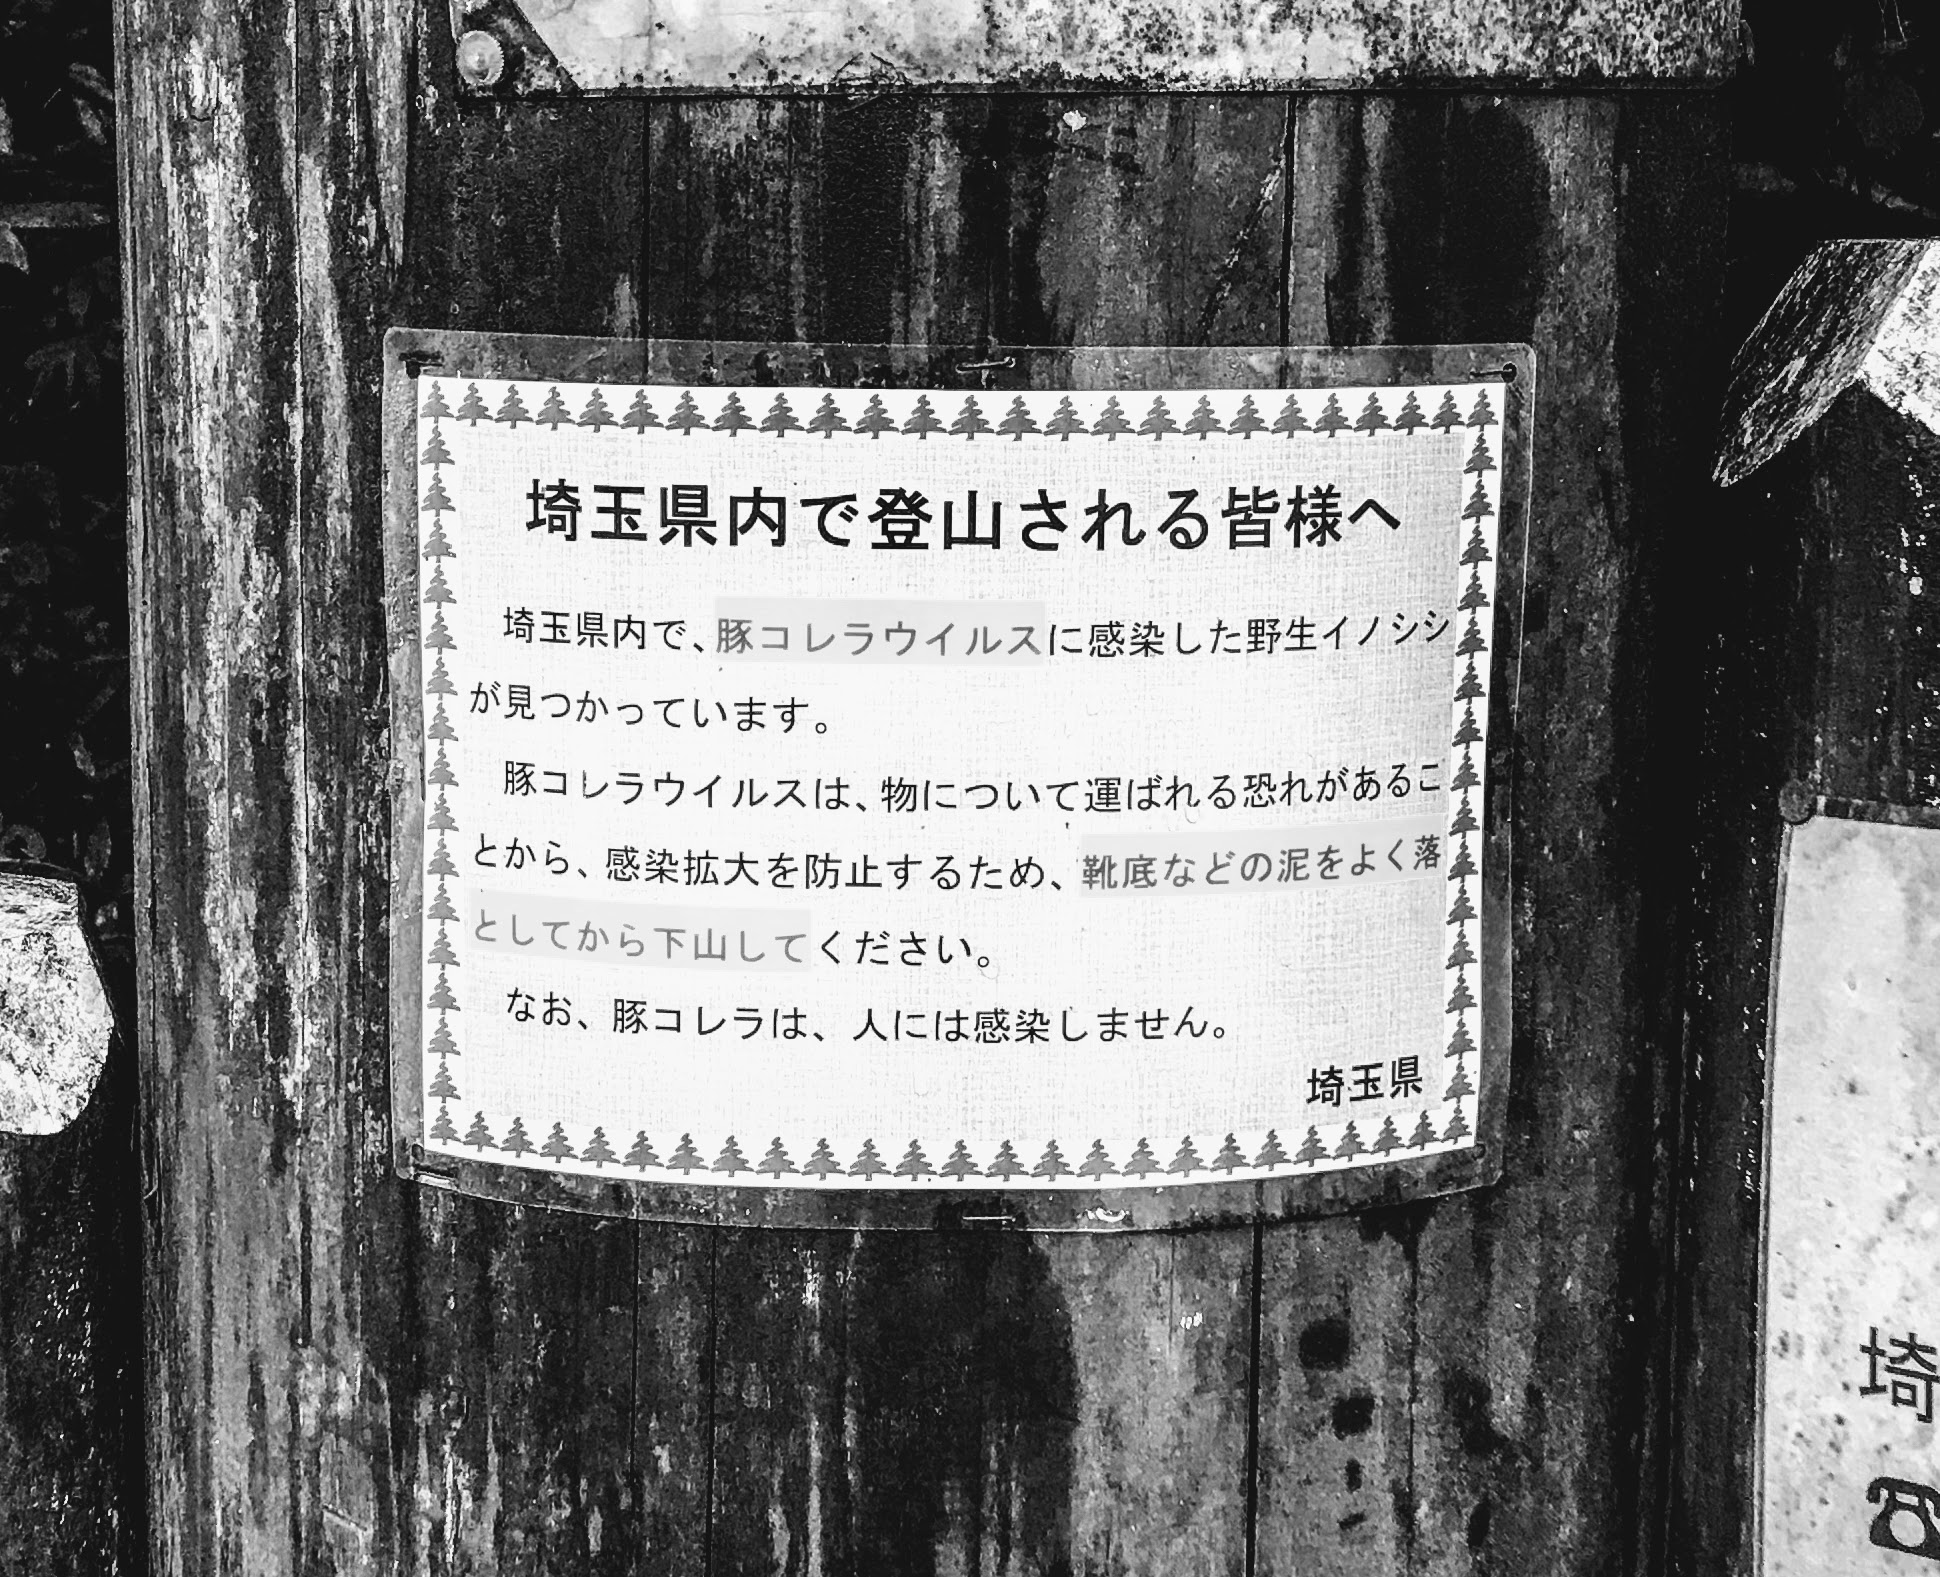 埼玉県内で登山される皆様へ
埼玉県内で、豚コレラウイルスに感染した野生イノシシ
が見つかっています。
豚コレラウイルスは、物について運ばれる恐れがあるこ
とから、感染拡大を防止するため、靴底などの泥をよく落
としてから下山してください。
なお、豚コレラは、人には感染しません。
埼玉県
埼